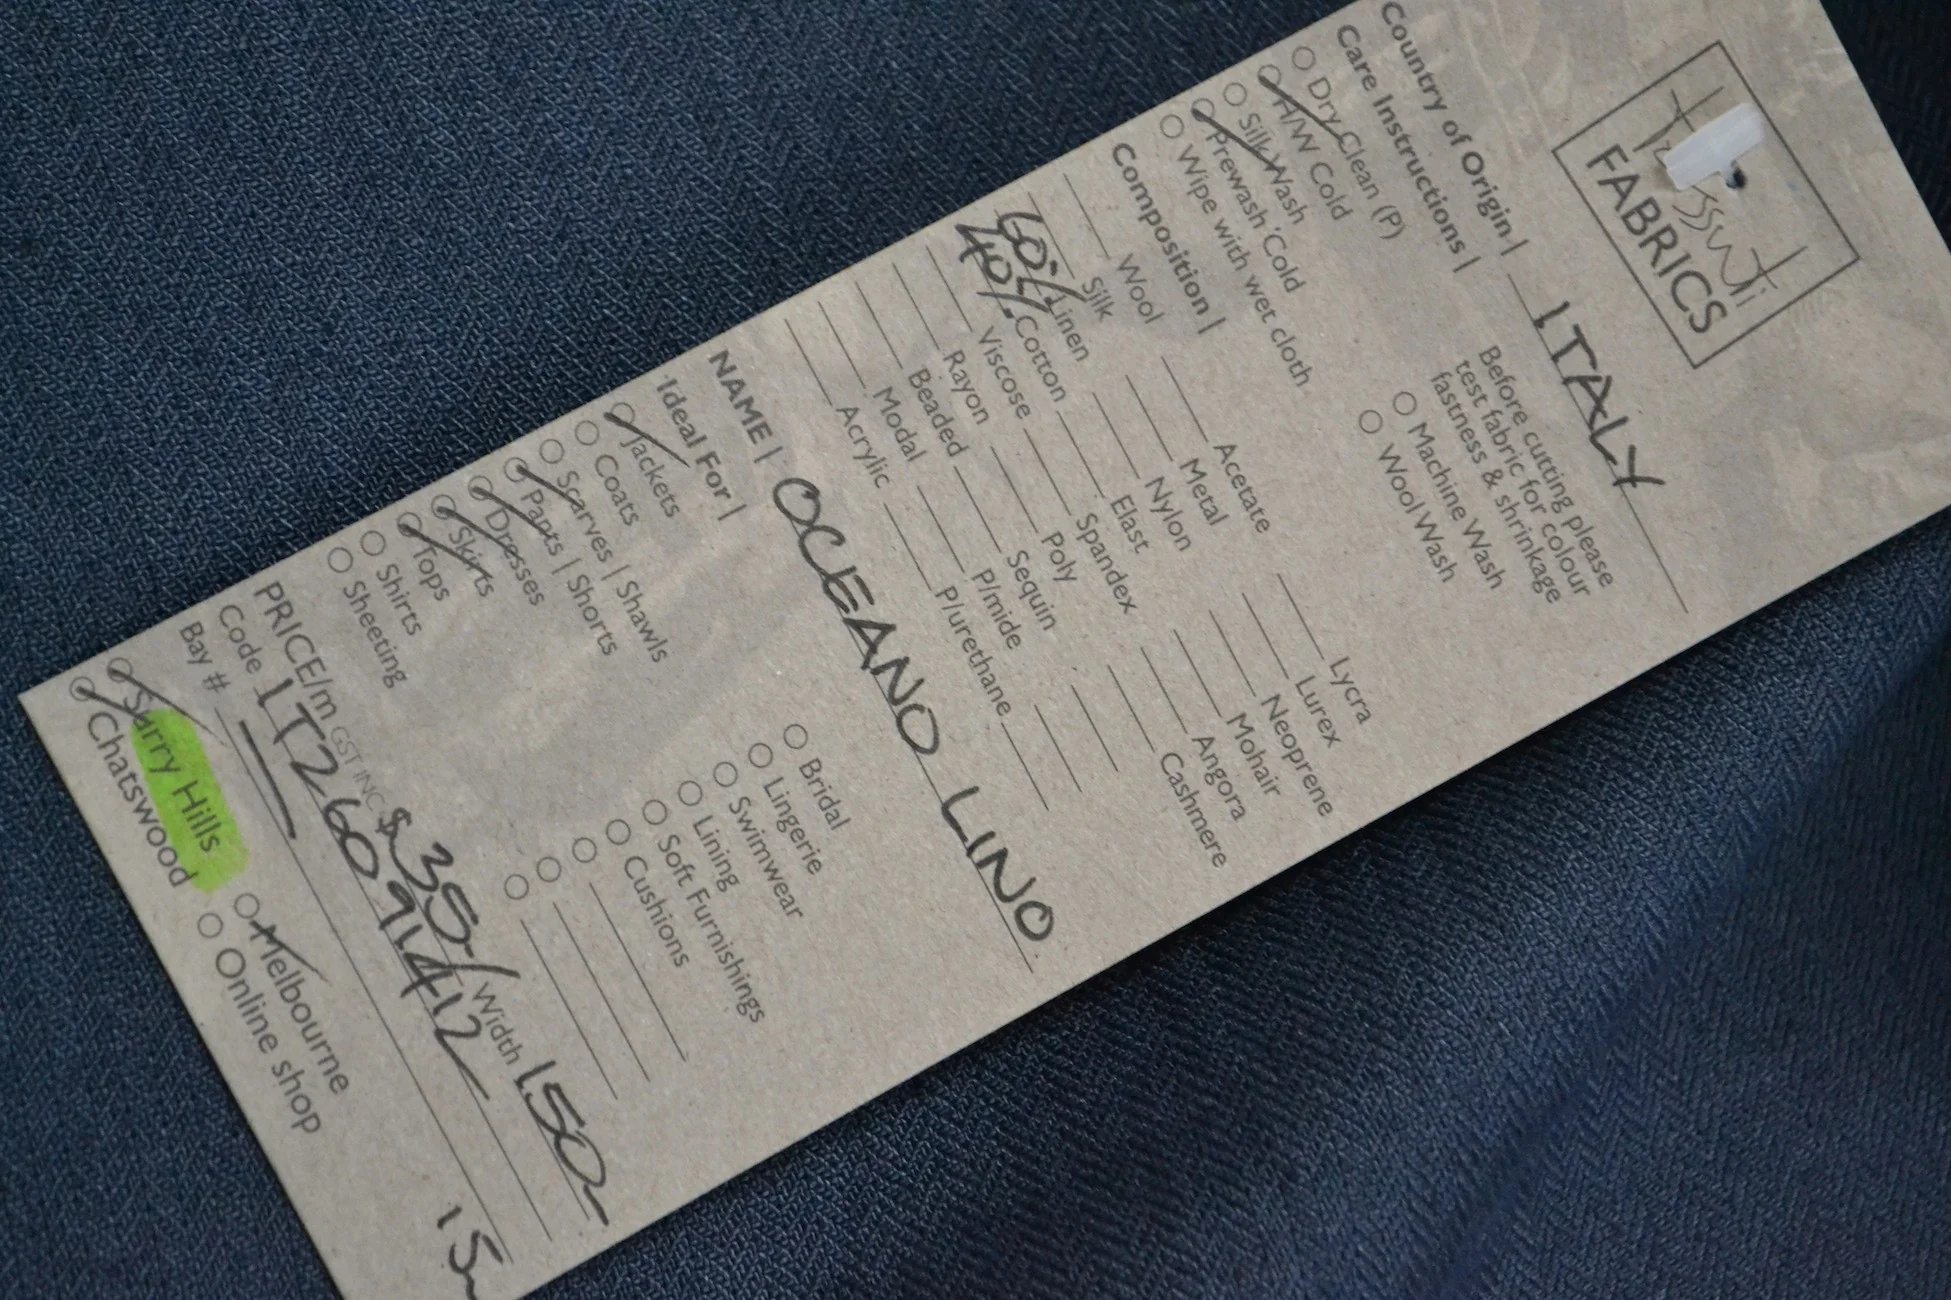 tessuti
FABRICS
Country of Origin | ITALY
Care Instructions |
Dry Clean (P)
H/W Cold
Silk Wash
Prewash Cold
Wipe with wet cloth
Before cutting please
test fabric for colour
fastness & shrinkage
Machine Wash
Wool Wash
Composition |
Wool
Silk
60% Linen
40% Cotton
Viscose
Rayon
Beaded
Modal
Acrylic
Acetate
Metal
Nylon
Elast
Spandex
Poly
Sequin
P/mide
P/urethane
Lycra
Lurex
Neoprene
Mohair
Angora
Cashmere
NAME | OCEANO LINO
Ideal For |
Jackets
Coats
Scarves | Shawls
Pants | Shorts
Dresses
Skirts
Tops
Shirts
Sheeting
Bridal
Lingerie
Swimwear
Lining
Soft Furnishings
Cushions
PRICE/m GST INC $35-/ Width 150-
Code IT26091412
Bay #
Surry Hills
Chatswood
Melbourne
Online shop